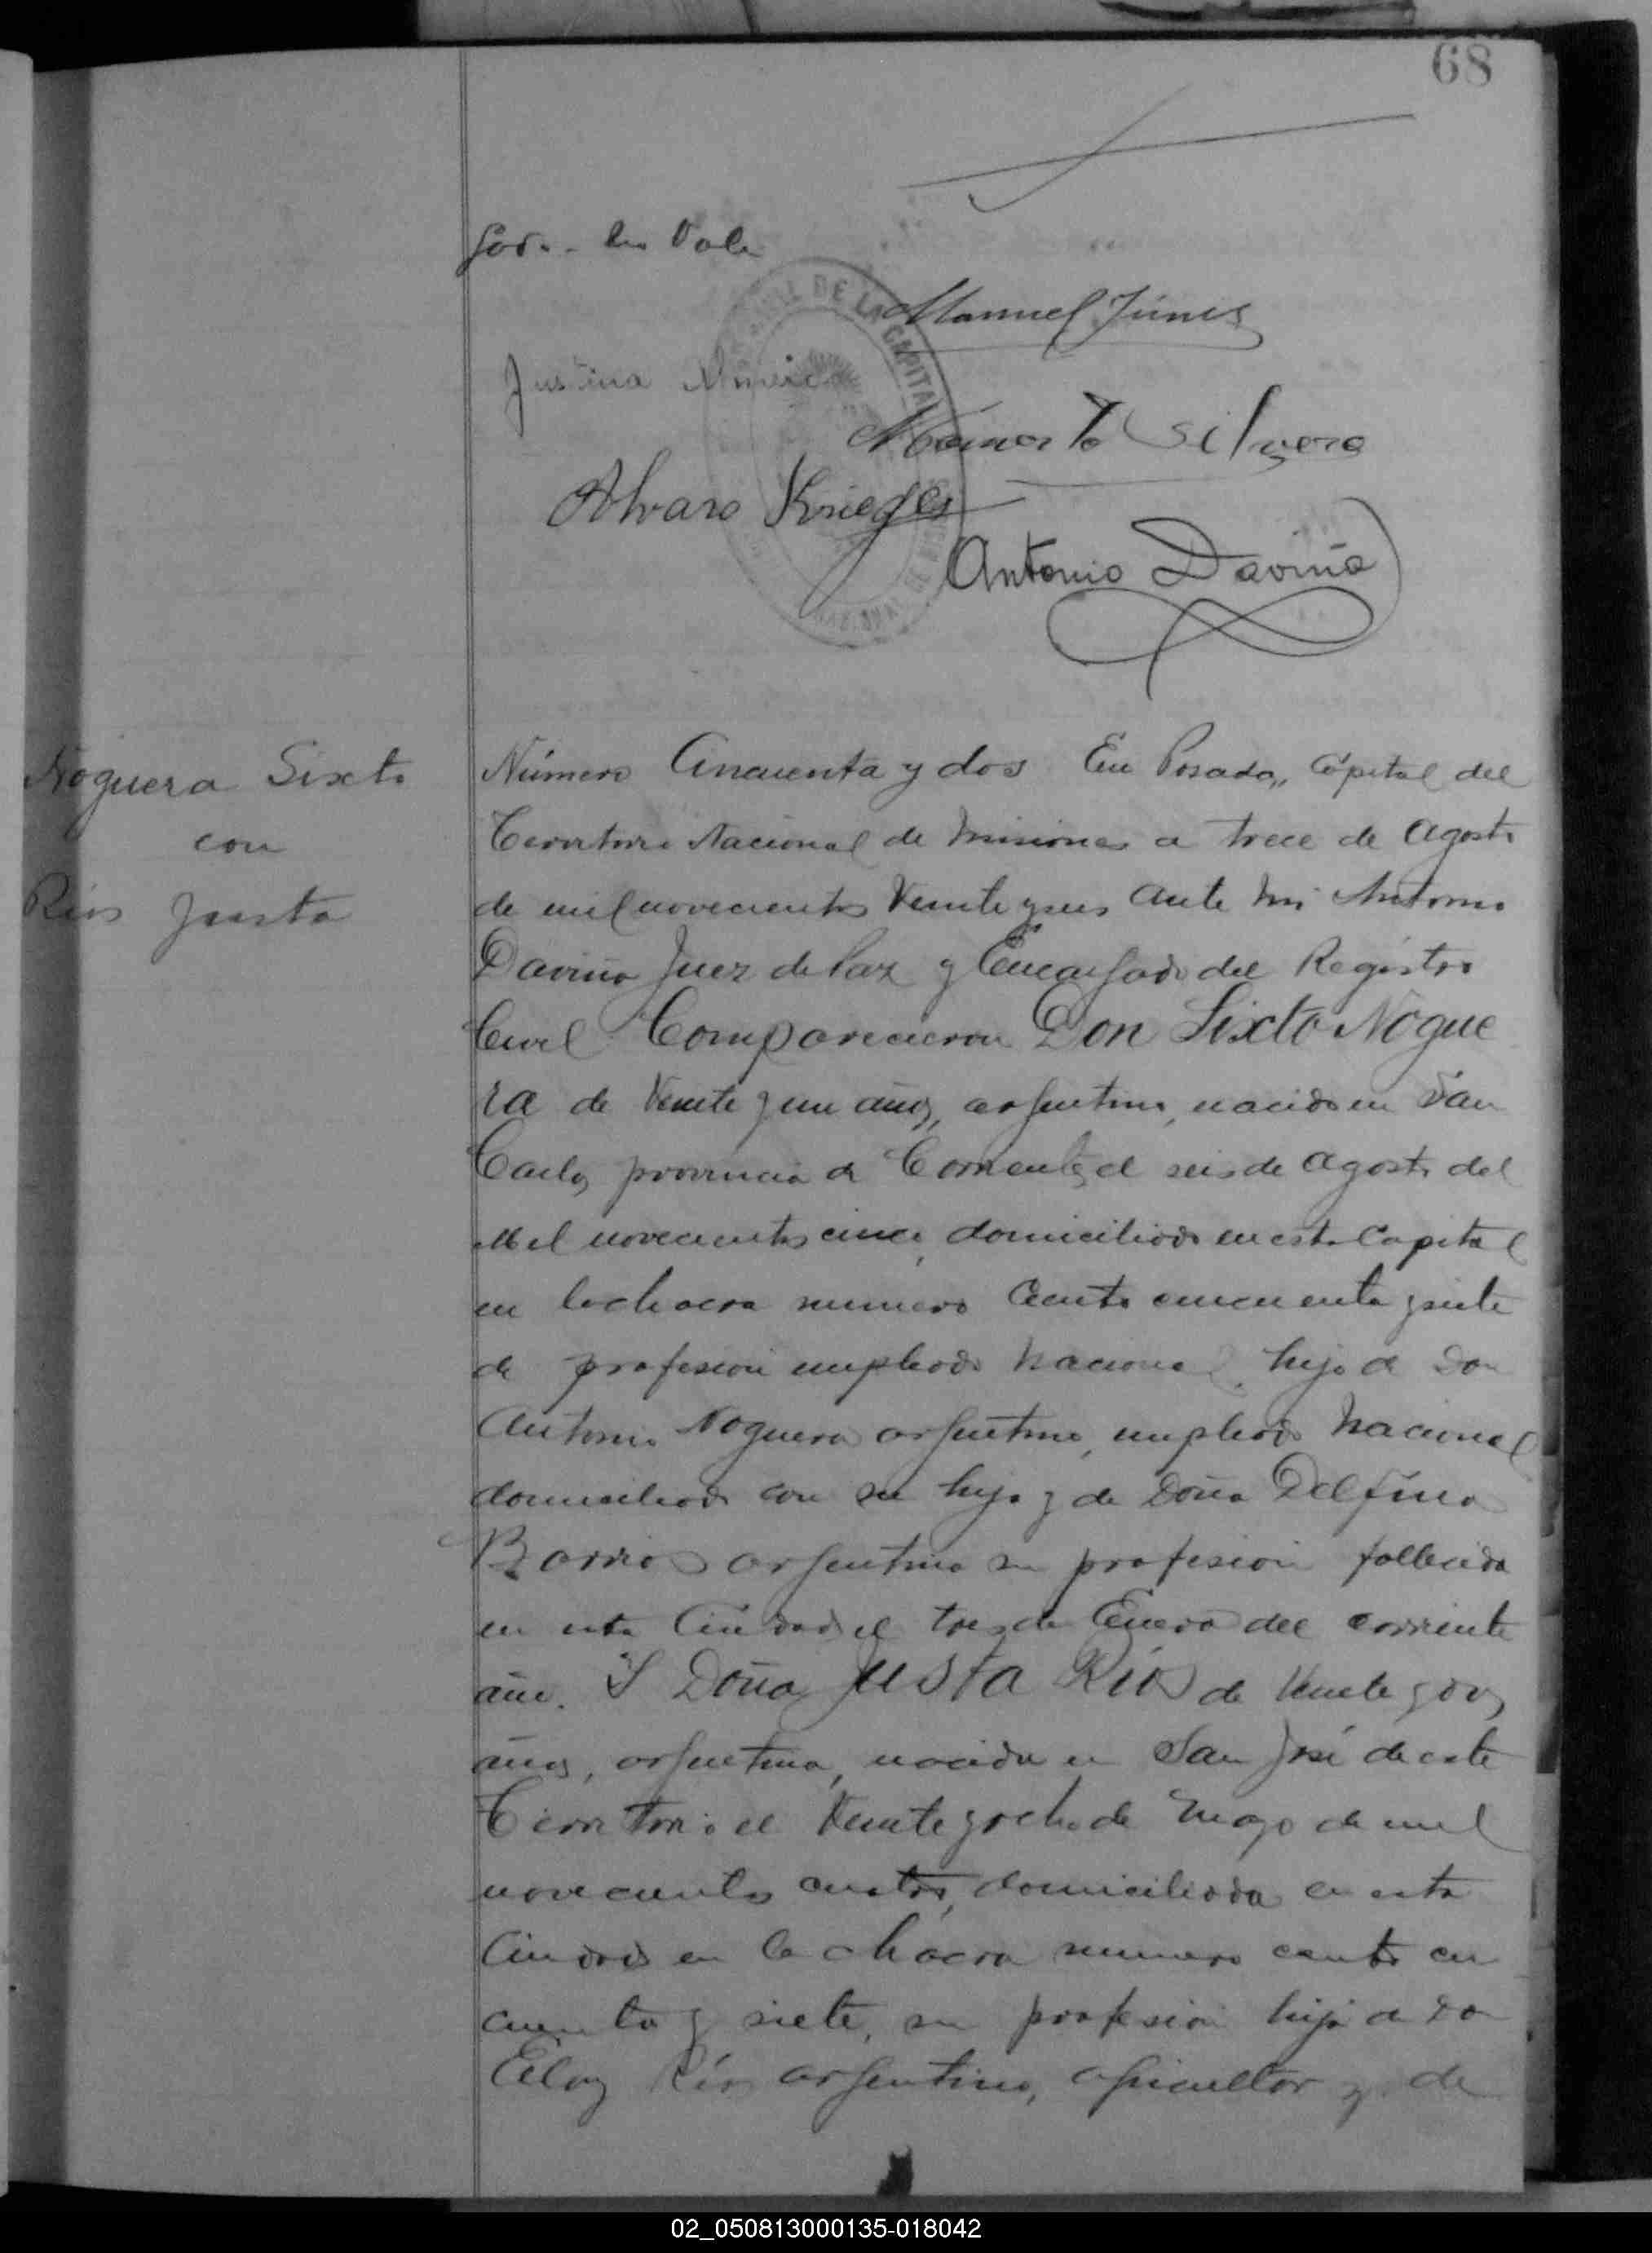 68
Manuel Júnis
Justina
Silvera
Alvaro Krieger
Antonio Daviña
Noguera Sixto
con
Rios Justa
Número Cincuenta y dos En Posadas, Capital del
Territorio Nacional de Misiones a trece de Agosto
de mil novecientos veinte y seis ante mi Antonio
Daviña Juez de Paz y Encargado del Registro
Civil Comparecieron Don Sixto Nogue
ra de veinte y un años, argentino, nacido en San
Carlos provincia de Corrientes el seis de agosto del
Mil novecientos cinco, domiciliado en esta Capital
en la chacra numero ciento cincuenta y siete
de profesion empleado nacional, hijo de Don
Antonio Noguera argentino, empleado nacional
domiciliado con su hijo y de Doña Delfina
Barrios argentina sin profesion fallecida
en esta Ciudad el tres de Enero del corriente
año. Y Doña Justa Rios de veinte y dos
años, argentina, nacida en San José de este
Territorio el veinte y ocho de Mayo de mil
novecientos cuatro, domiciliada en esta
Ciudad en la chacra numero ciento cin
cuenta y siete, sin profesion hija de Don
Eloy Ríos argentino, agricultor y de
02_050813000135-018042